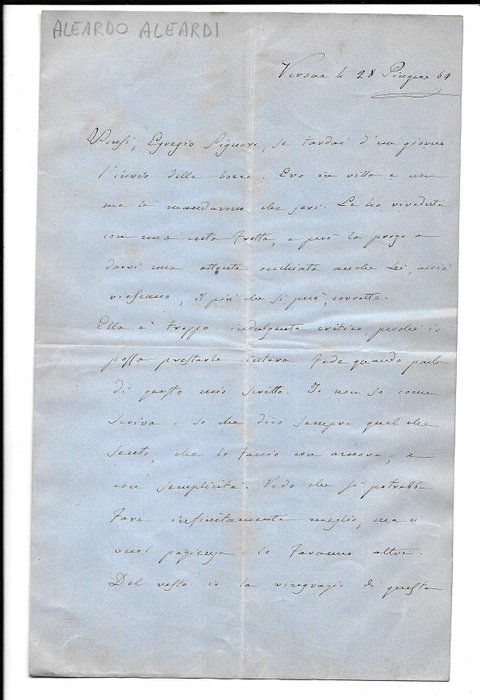 ALEARDO ALEARDI
Verona li 28 Giugno 64
Scusi, Egregio Signore, se tardai d'un giorno
l'invio delle bozze. Ero in villa e non
me le mandarono che jeri. Le ho rivedute
con una certa fretta, e però la prego a
darvi una attenta occhiata anche Lei, acciò
riescano, il più che si può, corrette.
Ella è troppo indulgente critico, perché io
possa prestarle intera fede quando parla
di questo mio scritto. Io non so come
scriva: so che dico sempre quel che
sento, che lo faccio con amore, e
con semplicità. Vedo che si potrebbe
fare infinitamente meglio, ma ci
vuol pazienza: lo faranno altri.
Del resto io la ringrazio di questa